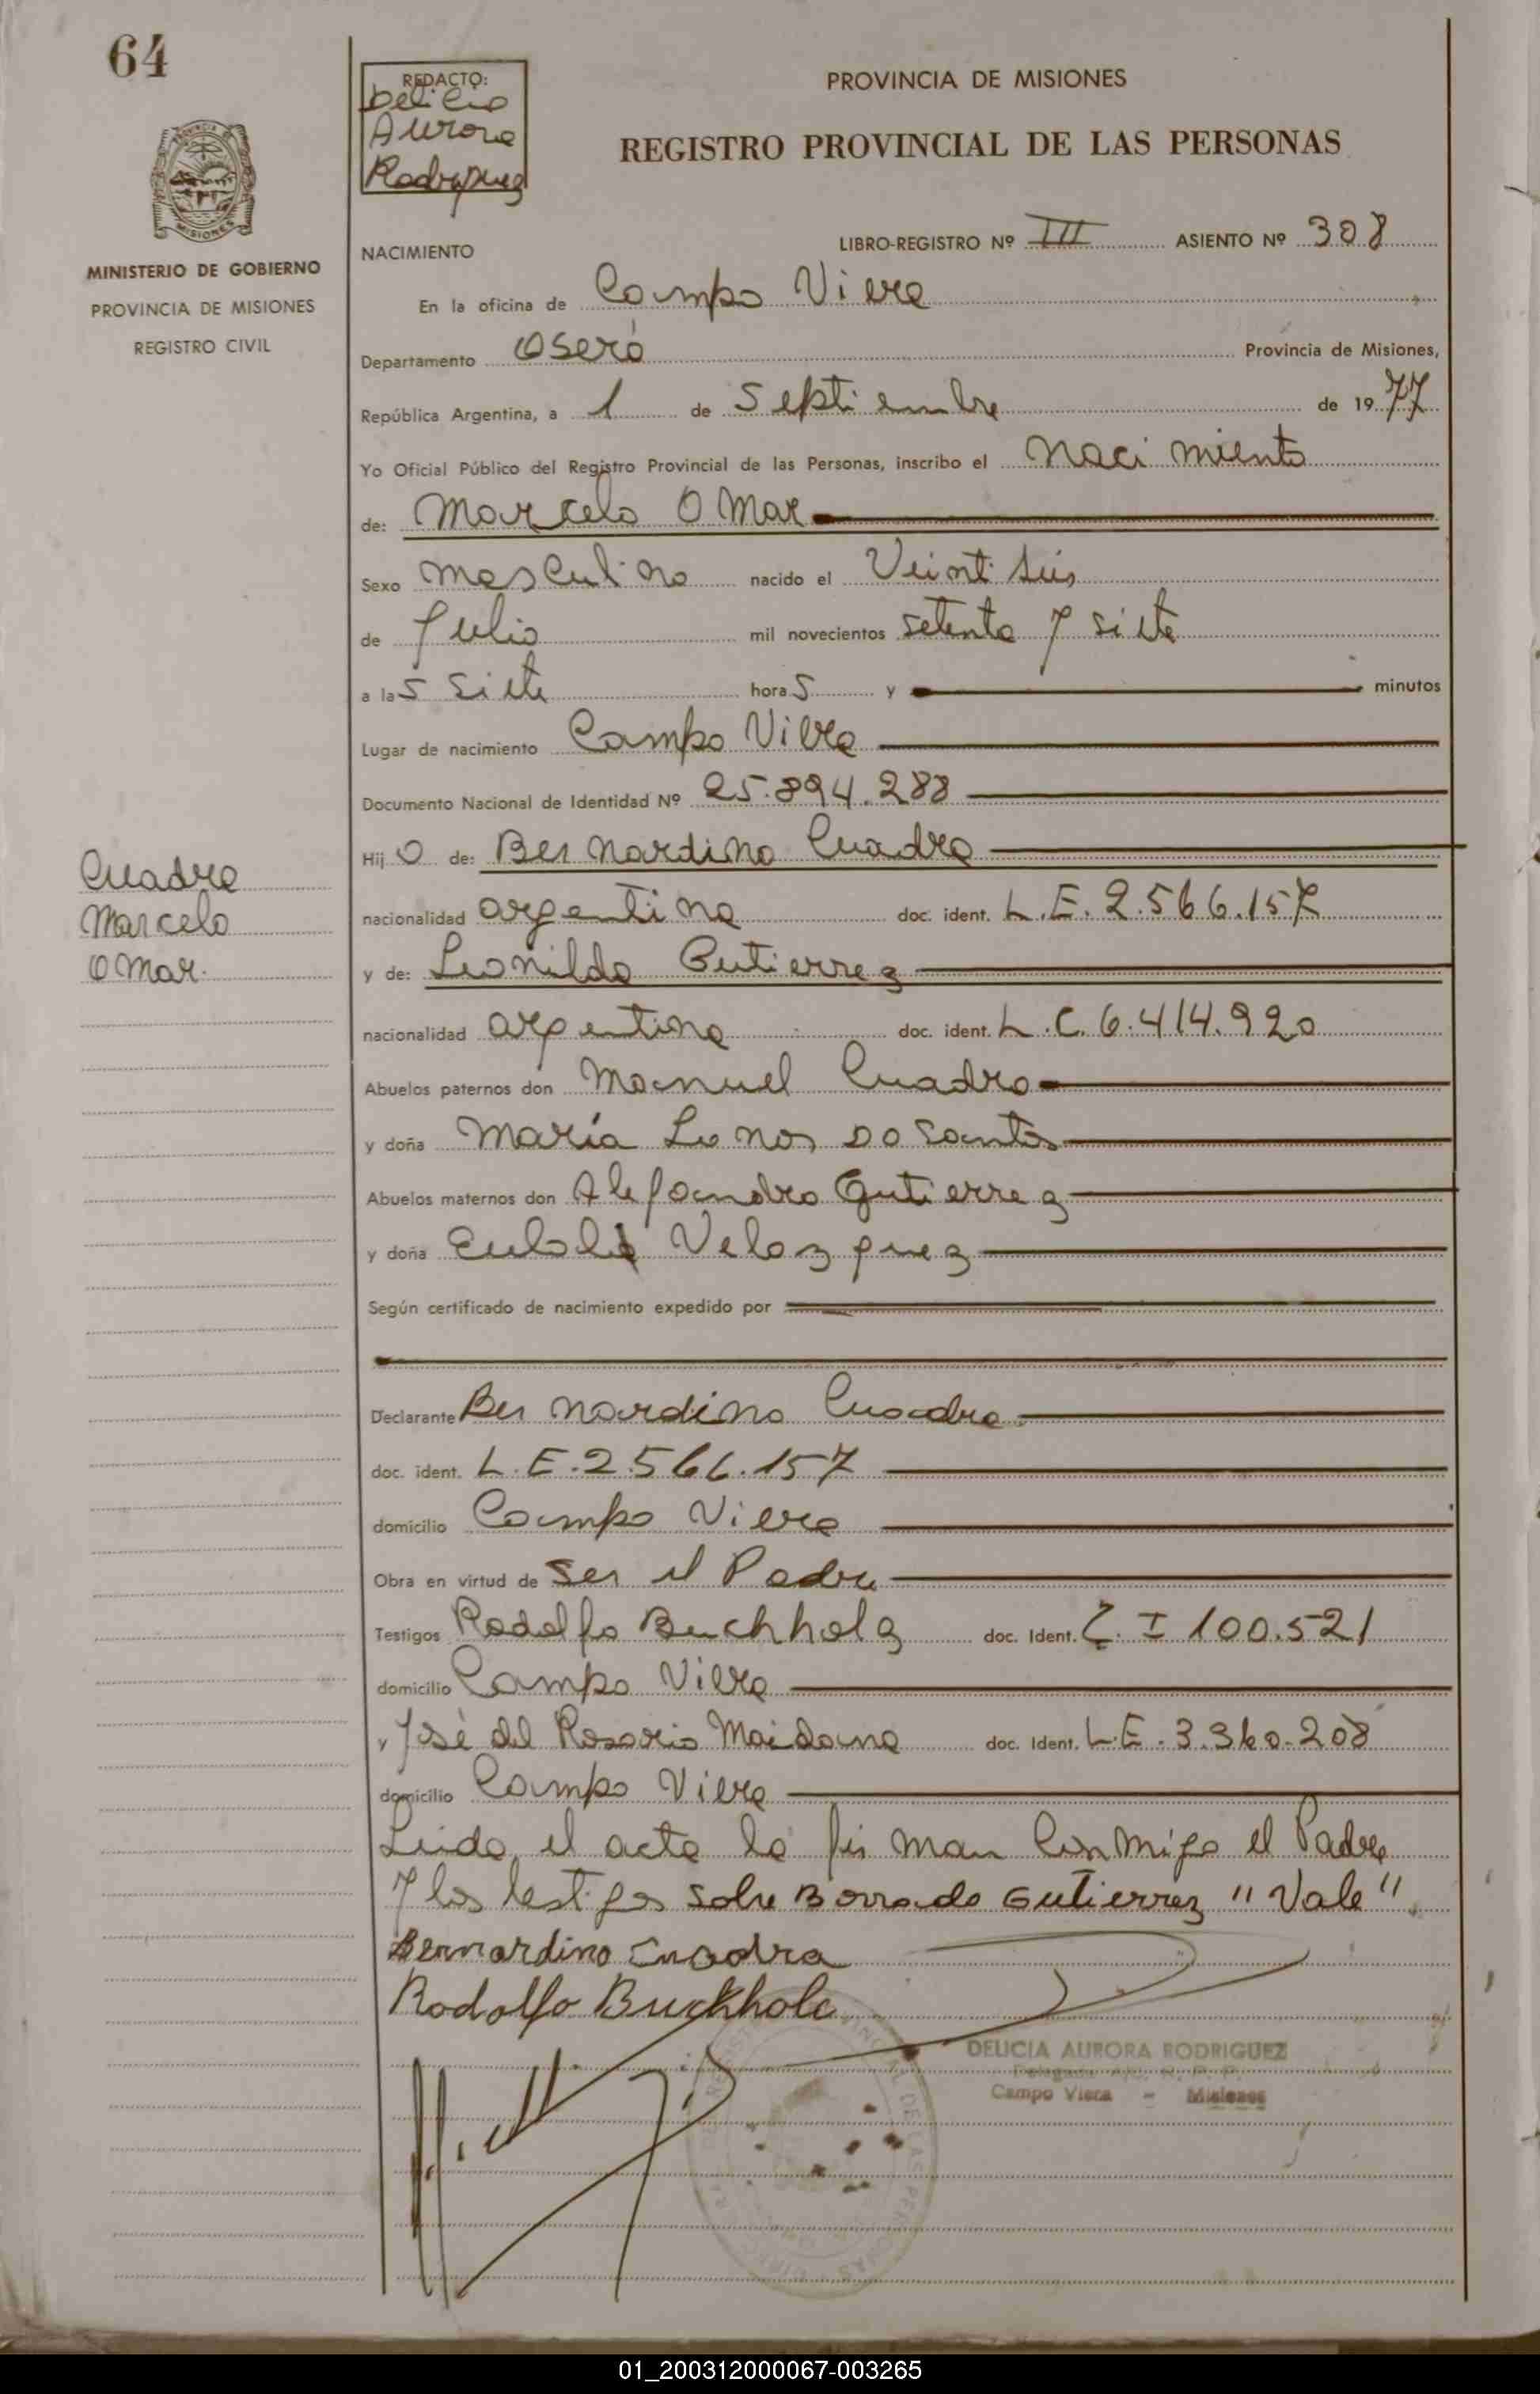 64
REDACTO:
Delicia
Aurora
Rodriguez
PROVINCIA DE MISIONES
REGISTRO PROVINCIAL DE LAS PERSONAS
MINISTERIO DE GOBIERNO
PROVINCIA DE MISIONES
REGISTRO CIVIL
NACIMIENTO
LIBRO-REGISTRO Nº III ASIENTO Nº 308
En la oficina de Campo Viera
Departamento Oberá Provincia de Misiones,
República Argentina, a 1 de Septiembre de 1977
Yo Oficial Público del Registro Provincial de las Personas, inscribo el Nacimiento
de: Marcelo Omar
Sexo masculino nacido el Veintiseis
de Julio mil novecientos setenta y siete
a las siete horas y minutos
Lugar de nacimiento Campo Viera
Documento Nacional de Identidad Nº 25.894.288
Hijo de: Bernardino Cuadra
nacionalidad argentina doc. ident. L.E. 2.566.157
y de: Leonilda Gutierrez
nacionalidad argentina doc. ident. L.C. 6.414.920
Abuelos paternos don Manuel Cuadro
y doña María Do Santos
Abuelos maternos don Alejandro Gutierrez
y doña Velazquez
Según certificado de nacimiento expedido por
Declarante Bernardino Cuadra
doc. ident. L.E. 2.566.157
domicilio Campo Viera
Obra en virtud de ser el Padre
Testigos Rodolfo Buchholz doc. Ident. C. I 100.521
domicilio Campo Viera
y José del Rosario Maidana doc. Ident. L.E. 3.360.208
domicilio Campo Viera
Leida el acta la firman conmigo el Padre
y los testigos sobre Borrado Gutierrez "Vale"
Bernardino Cuadra
Rodolfo Buchholc
DELICIA AURORA RODRIGUEZ
Campo Viera - Misiones
Cuadra
Marcelo
Omar.
01_200312000067-003265